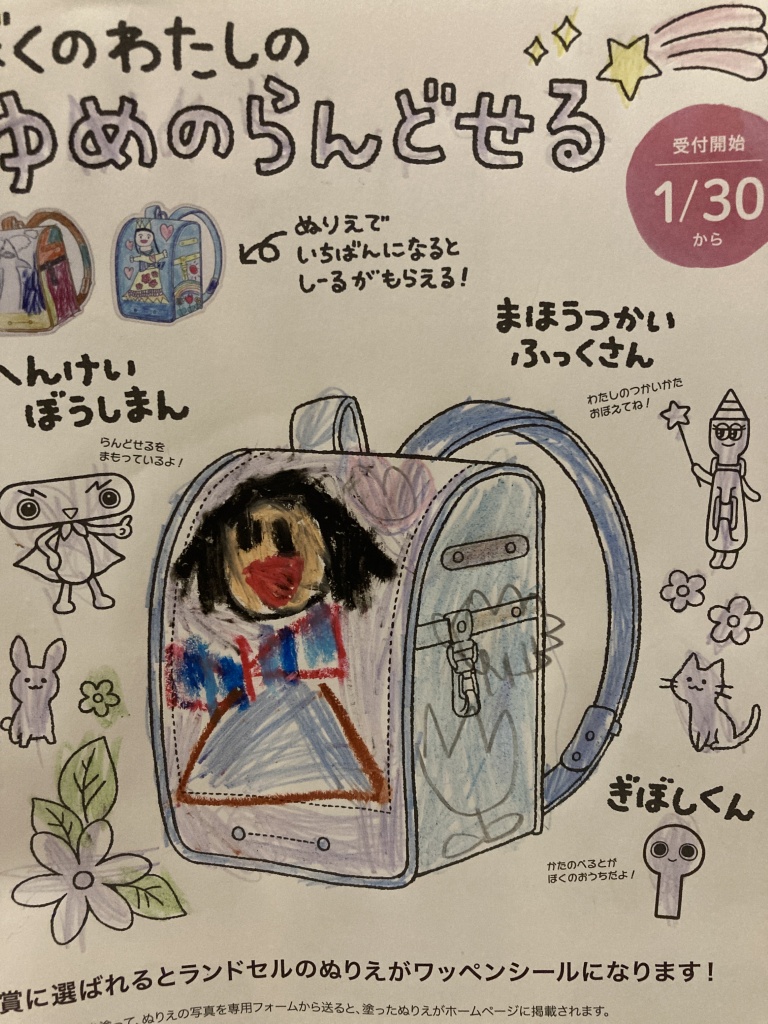 ぼくのわたしの
ゆめのらんどせる
受付開始
1/30
から
ぬりえで
いちばんになると
しーるがもらえる!
まほうつかい
ふっくさん
わたしのつかいかた
おぼえてね!
へんけい
ぼうしまん
らんどせるを
まもっているよ!
ぎぼしくん
かたのべるとが
ぼくのおうちだよ!
賞に選ばれるとランドセルのぬりえがワッペンシールになります!
って、ぬりえの写真を専用フォームから送ると、塗ったぬりえがホームページに掲載されます。